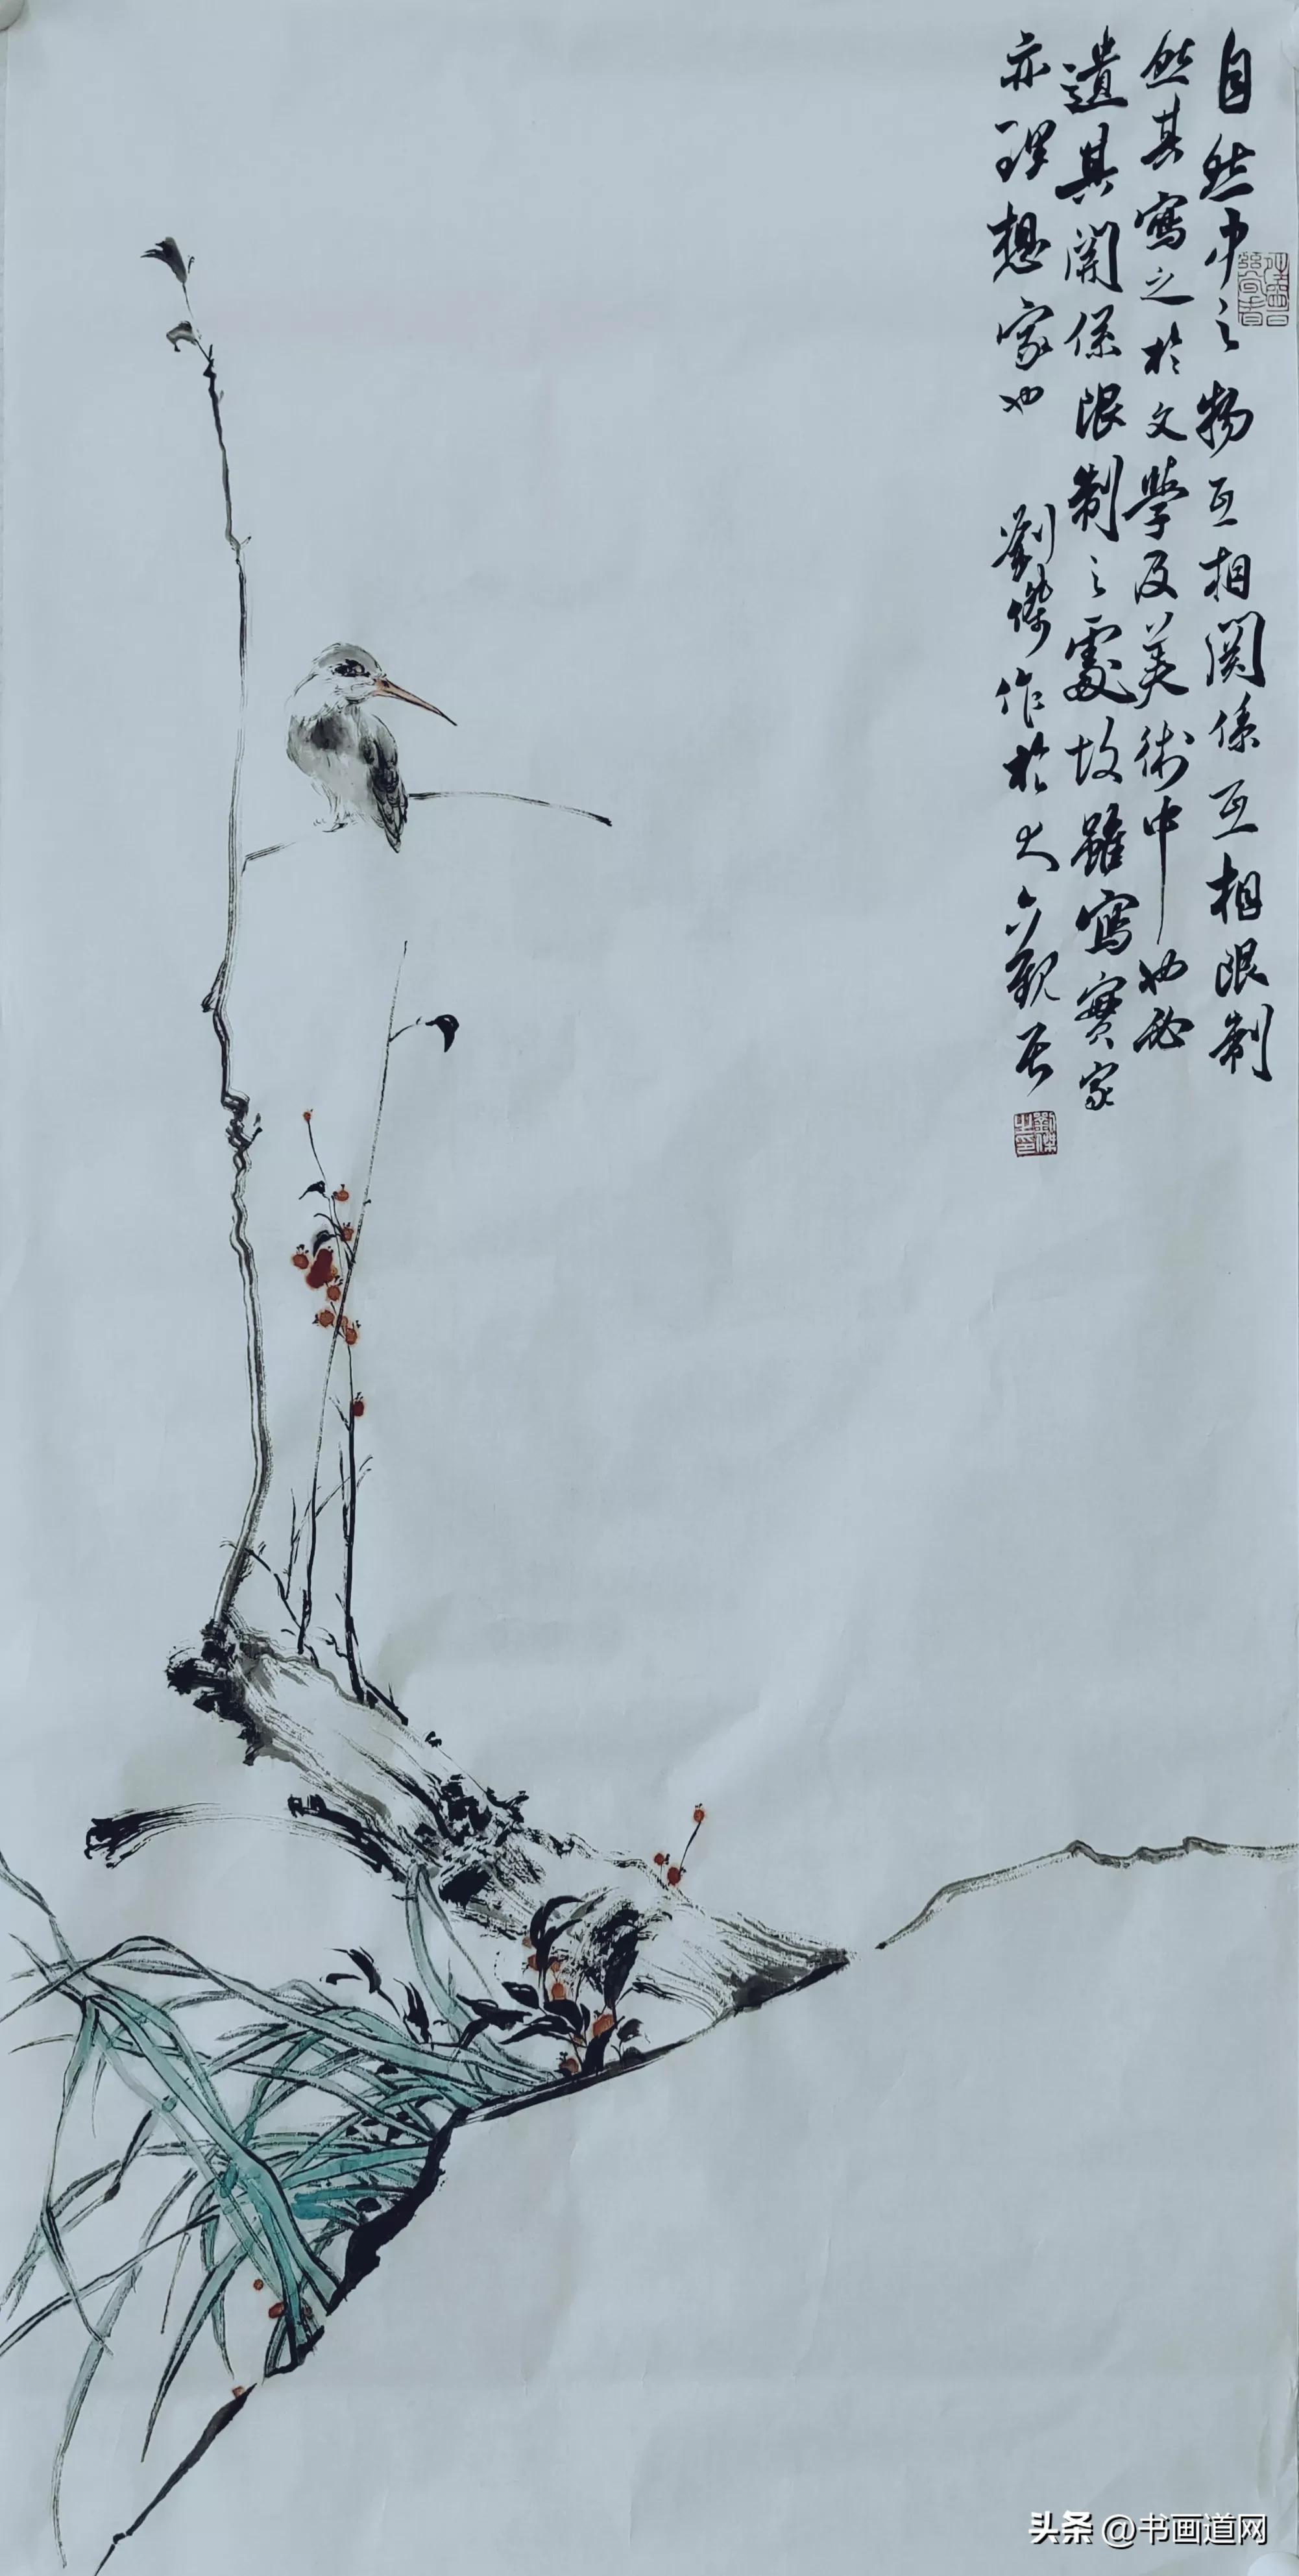 自然中之物互相關係互相限制
然其寫之於文學及美術中也必
遺其關係限制之處故雖寫實家
亦理想家也 劉傑作於大觀居
劉傑之印
头条 @书画道网